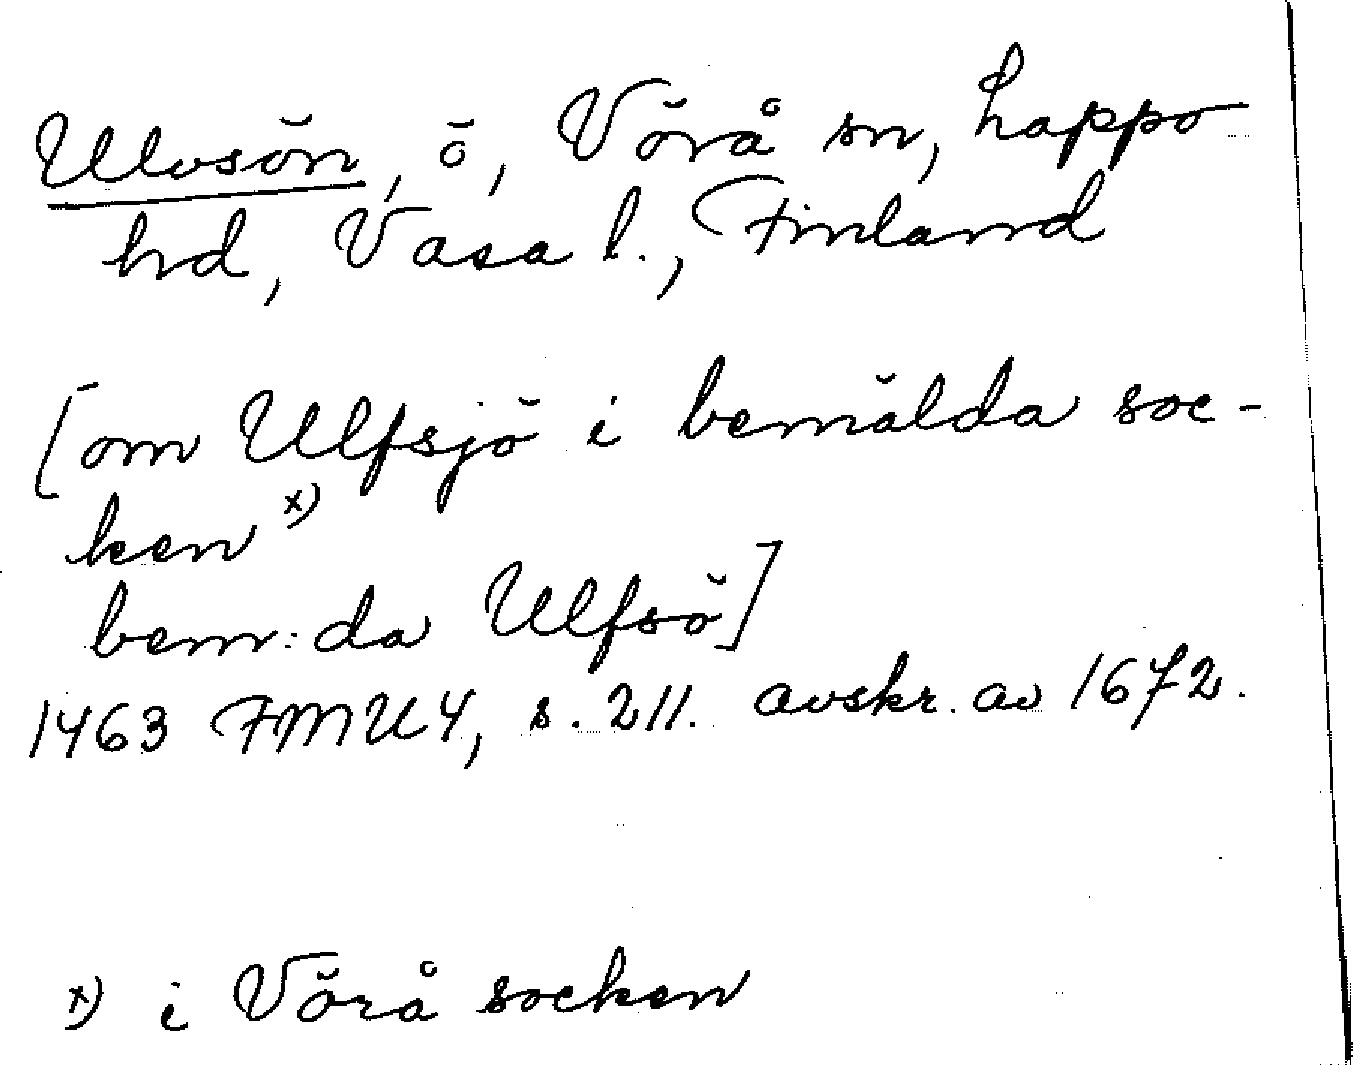 Ulvsön, ö, Vörå sn, Lappo
hd, Vasa l., Finland
[om Ulfsjö i bemälda soc-
ken x)
bem:da Ulfsö]
1463 FMU4, s. 211. avskr. av 1672.
x) i Vörå socken